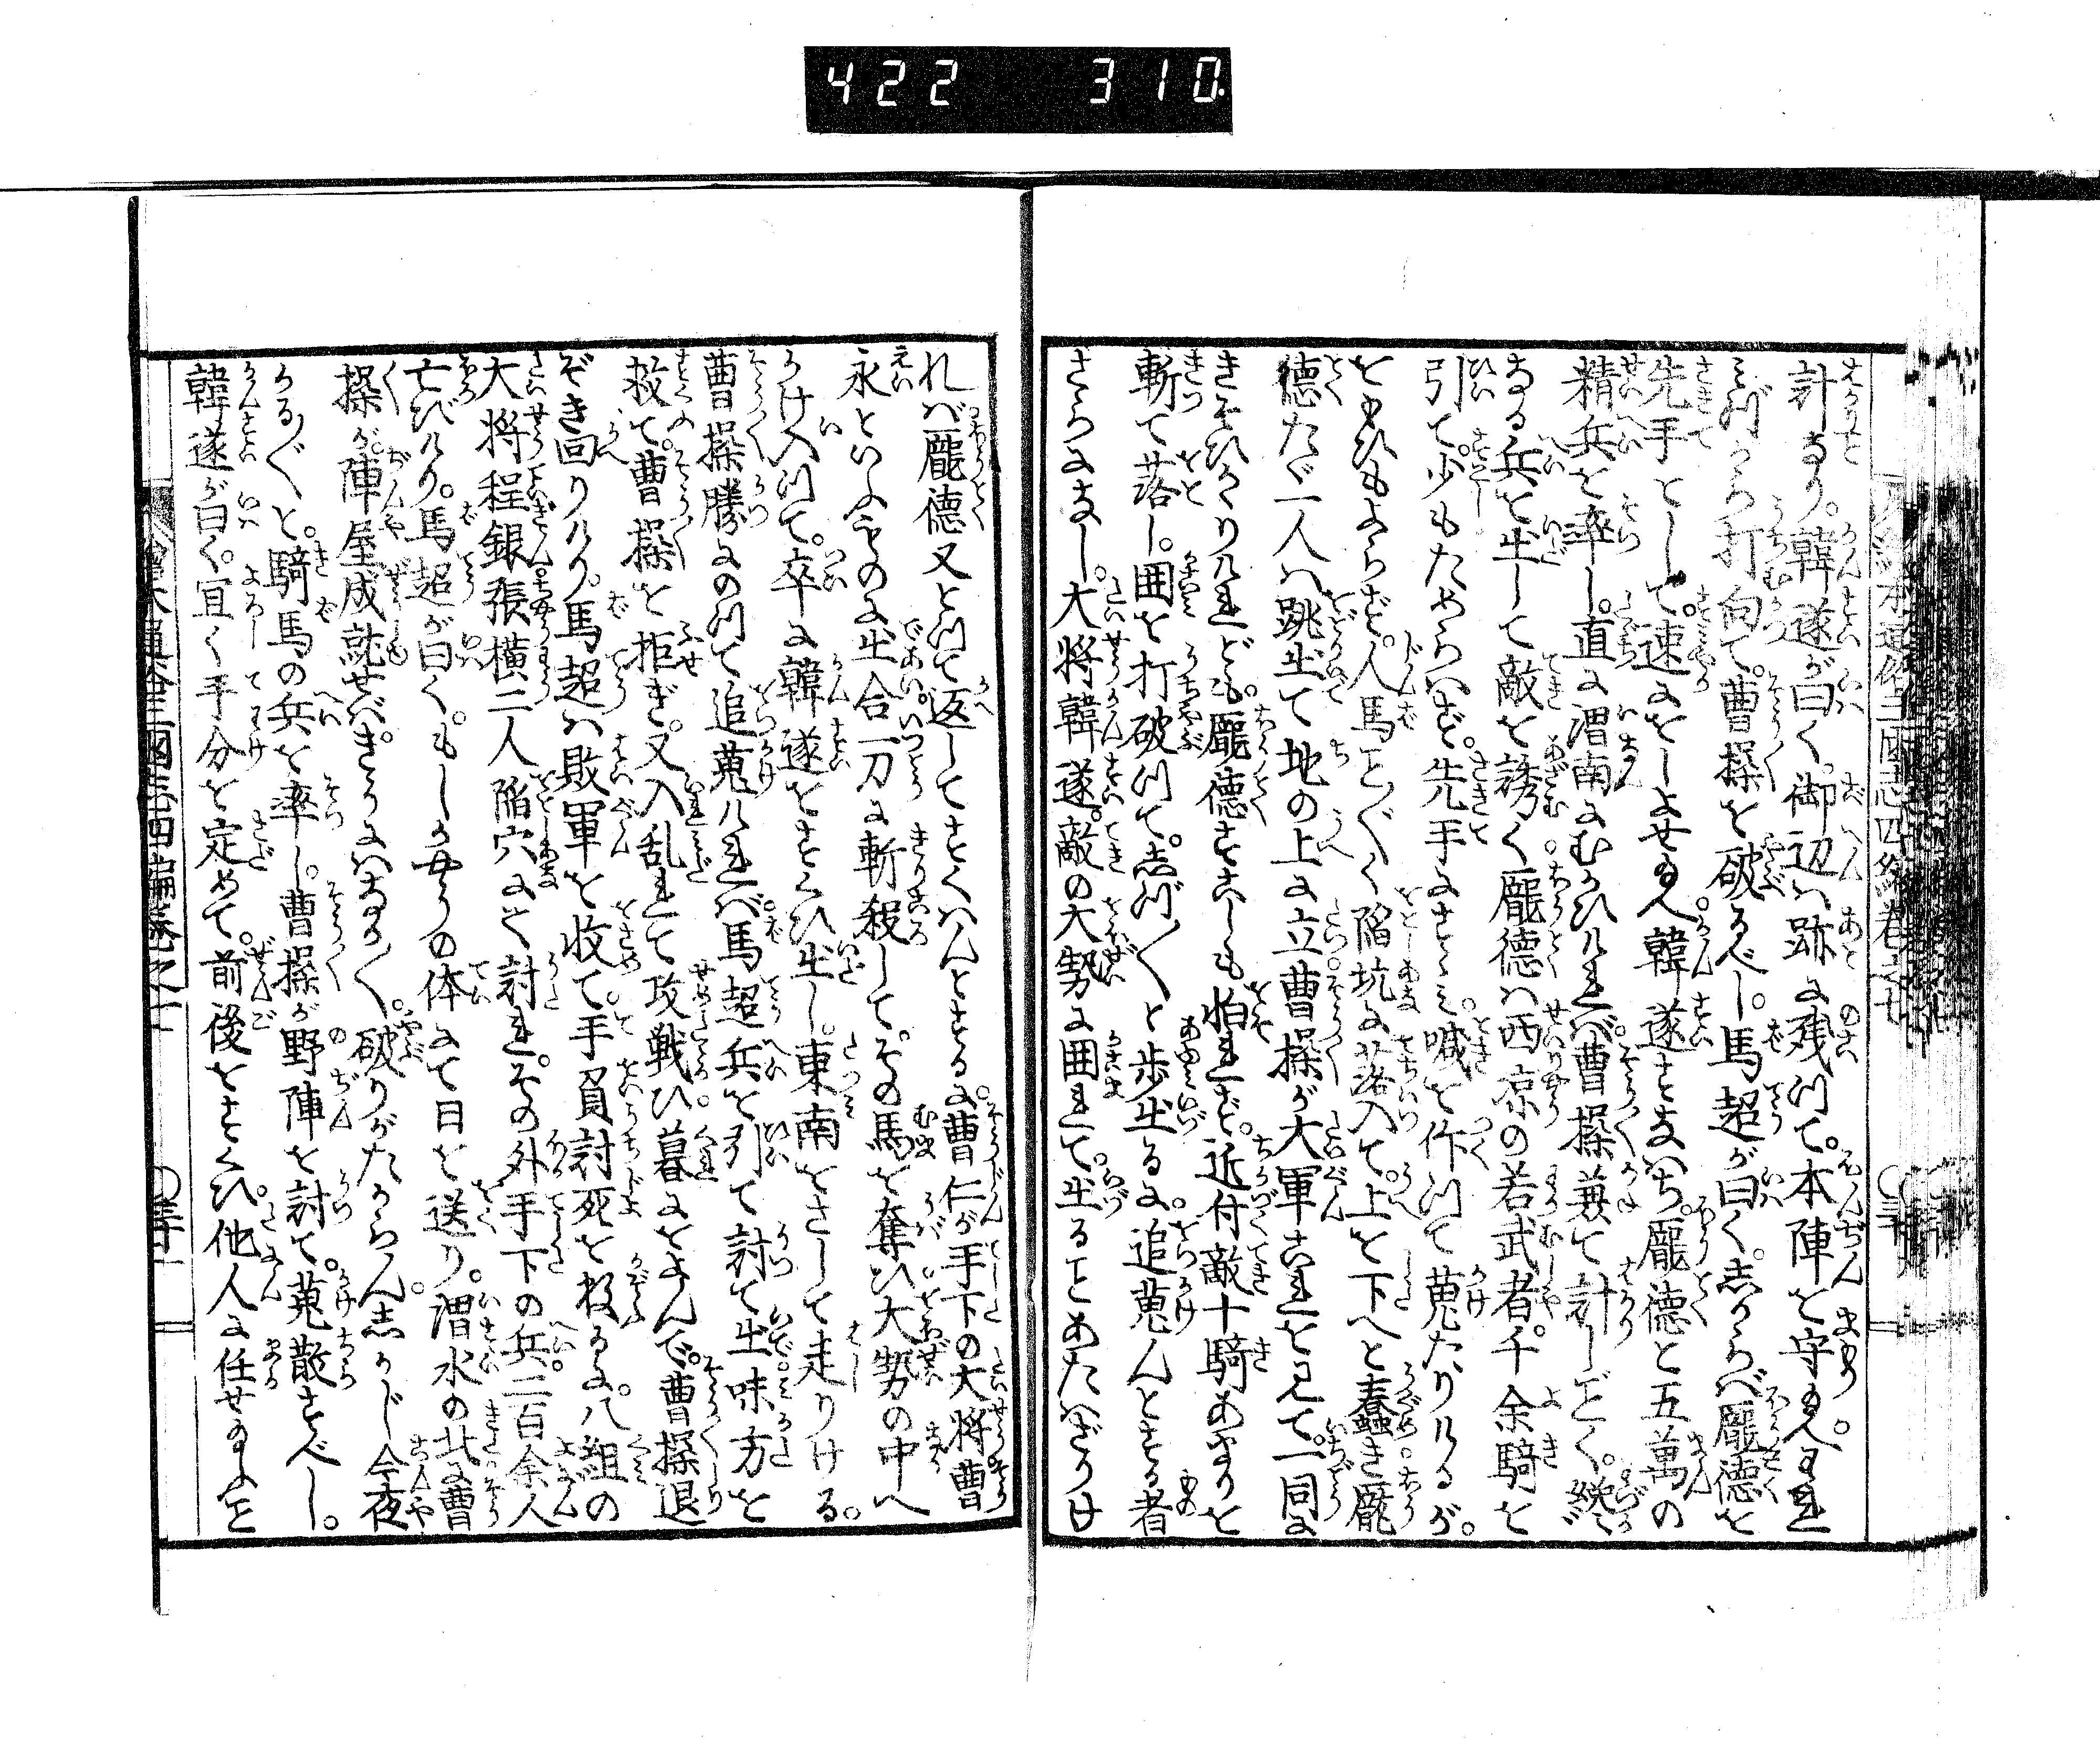 422 310
計なり。韓遂が曰く。御辺は跡に残つて。本陣を守り玉へ。われ
みづから打向て。曹操を破るべし。馬超が曰く。しからば龐徳を
先手として。速におしよせ玉へ。韓遂すなはち。龐徳と五萬の
精兵を率し。直に渭南にむかひければ。曹操兼て計しごとく。纔
なる兵を出して敵を誘く。龐徳は西凉の若武者。千余騎を
引て。少もためらはず。先手にすゝみ。喊を作つて蒐たりけるが。
をもひもよらず。人馬こと〴〵く陥坑に落入て。上を下へと蠢き龐
徳たゞ一人は跳出て地の上に立曹操が大軍これを見て。一同に
きそひかゝりけれども。龐徳すこしも怕れず。近付敵十騎あまりを
斬て落し。囲を打破つて。しづ〳〵と歩出るに。追蒐んとする者
さらになし。大将韓遂。敵の大勢に囲れて。出ることあたはざりけ
れば龐徳又とつて返してすくはんとするに。曹仁が手下の大将曹
永といふものに出合。一刀に斬殺して。その馬を奪ひ大勢の中へ
かけ入つて。卒に韓遂をすくひ出し。東南をさして走りける。
曹操勝にのつて追蒐ければ。馬超兵を引て討て出。味方を
救て。曹操を拒ぎ。又入乱れて攻戦ひ。暮にをよんで。曹操退
ぞき回りけり。馬超は敗軍を收て。手負討死を校るに。八組の
大将程銀。張横二人陥穴にて討れ。その外手下の兵。二百余人
亡びけり。馬超が曰く。もしかやうの体にて日を送り。渭水の北に曹
操が。陣屋成就せば。きうにはなか〳〵。破りがたからん。しかじ今夜
かる〴〵と。騎馬の兵を率し。曹操が野陣を討て。蒐散すべし。
韓遂が曰く。宜く手分を定めて。前後をすくひ。他人に任せ玉ふこと